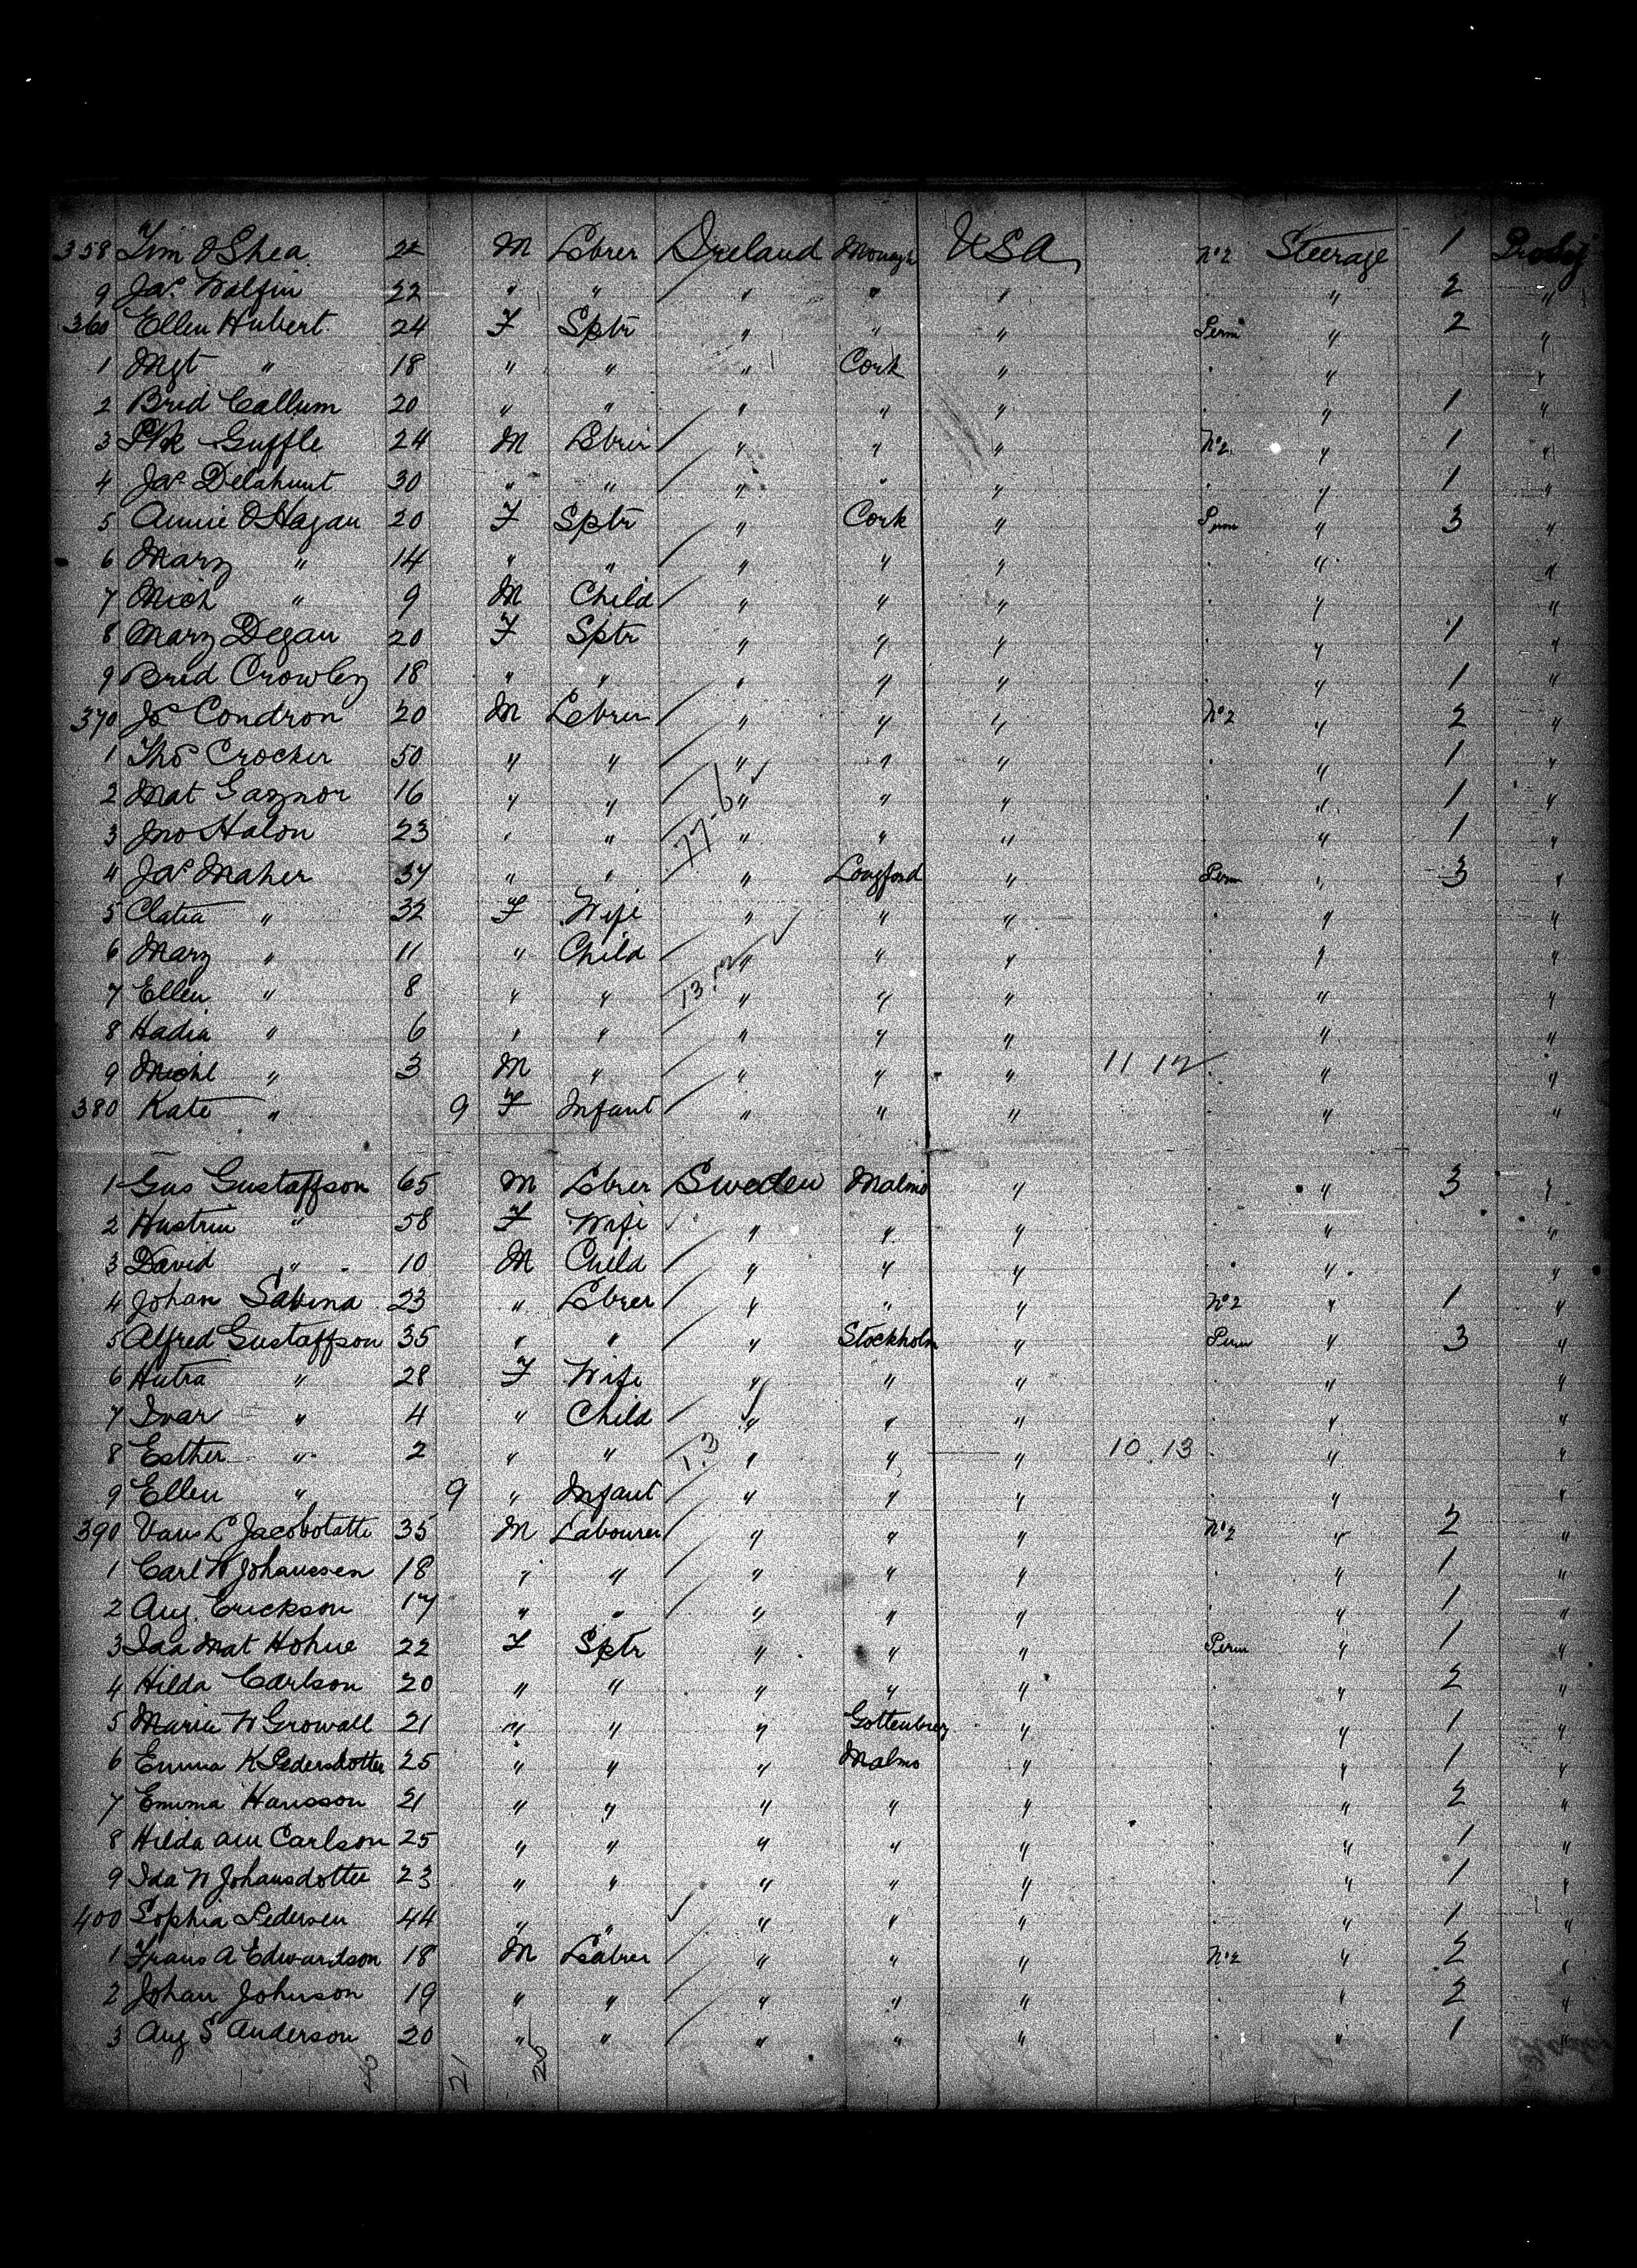 358 Tim O'Shea 22 M Lbrer Ireland Monagh USA No 2 Steerage 1
9 Jas 22 " " " " " " 2 "
360 Ellen Hubert 24 F Sptr " " " Perm " 2 "
1 Mgt " 18 " " " Cork " " "
2 Brid Callum 20 " " " " " " 1 "
3 Ptk Guffle 24 M Lbrer " " " No 2 " 1 "
4 Jas Delahunt 30 " " " " " " 1 "
5 Annie O'Hagan 20 F Sptr " Cork " Perm " 3 "
6 Mary " 14 " " " " " " "
7 Mich " 9 M Child " " " " "
8 Mary Degan 20 F Sptr " " " " 1 "
9 Brid Crowley 18 " " " " " " 1 "
370 Js Condron 20 M Lebrer " " " No 2 " 2 "
1 Thos Crocker 50 " " " " " " 1 "
2 Mat Gaynor 16 " " " " " " 1 "
3 Jno Halon 23 " " " " " " 1 "
4 Jas Maher 34 " " " Longford " Perm " 3 "
5 Clatia " 32 F Wife " " " " "
6 Mary " 11 " Child " " " " "
7 Ellen " 8 " " " " " " "
8 Hadia " 6 " " " " " " "
9 Michl " 3 M " " " " 11 12 " "
380 Kate " 9 F Infant " " " " "
1 Gus Gustaffson 65 M Lbrer Sweden Malmo " " 3 "
2 Hustrin " 58 F Wife " " " " "
3 David " 10 M Child " " " " "
4 Johan Sabina 23 " Lbrer " " " No 2 " 1 "
5 Alfred Gustaffson 35 " " " Stockholm " Perm " 3 "
6 Hutra " 28 F Wife " " " " "
7 Ivar " 4 " Child " " " " "
8 Esther " 2 " " 1.3 " " " 10 13 " "
9 Ellen " 9 " Infant " " " " "
390 Vans L Jacobotatte 35 M Labourer " " " No 2 " 2 "
1 Carl W Johanssen 18 " " " " " " 1 "
2 Aug. Erickson 17 " " " " " " 1 "
3 Ida Mat Hohue 22 F Sptr " " " Perm " 1 "
4 Hilda Carlson 20 " " " " " " 2 "
5 Maria N Growall 21 " " " Gottenbreg " " 1 "
6 Emma K Pedersdotter 25 " " " Malmo " " 1 "
7 Emma Hansson 21 " " " " " " 2 "
8 Hilda Am Carlson 25 " " " " " " 1 "
9 Ida N Johansdotter 23 " " " " " " 1 "
400 Sophia Pedersen 44 " " " " " " 1 "
1 Frans A Edwardson 18 M Labrer " " " No 2 " 2 "
2 Johan Johnson 19 " " " " " " 2 "
3 Aug S Anderson 20 " " " " " " 1 "
21 26